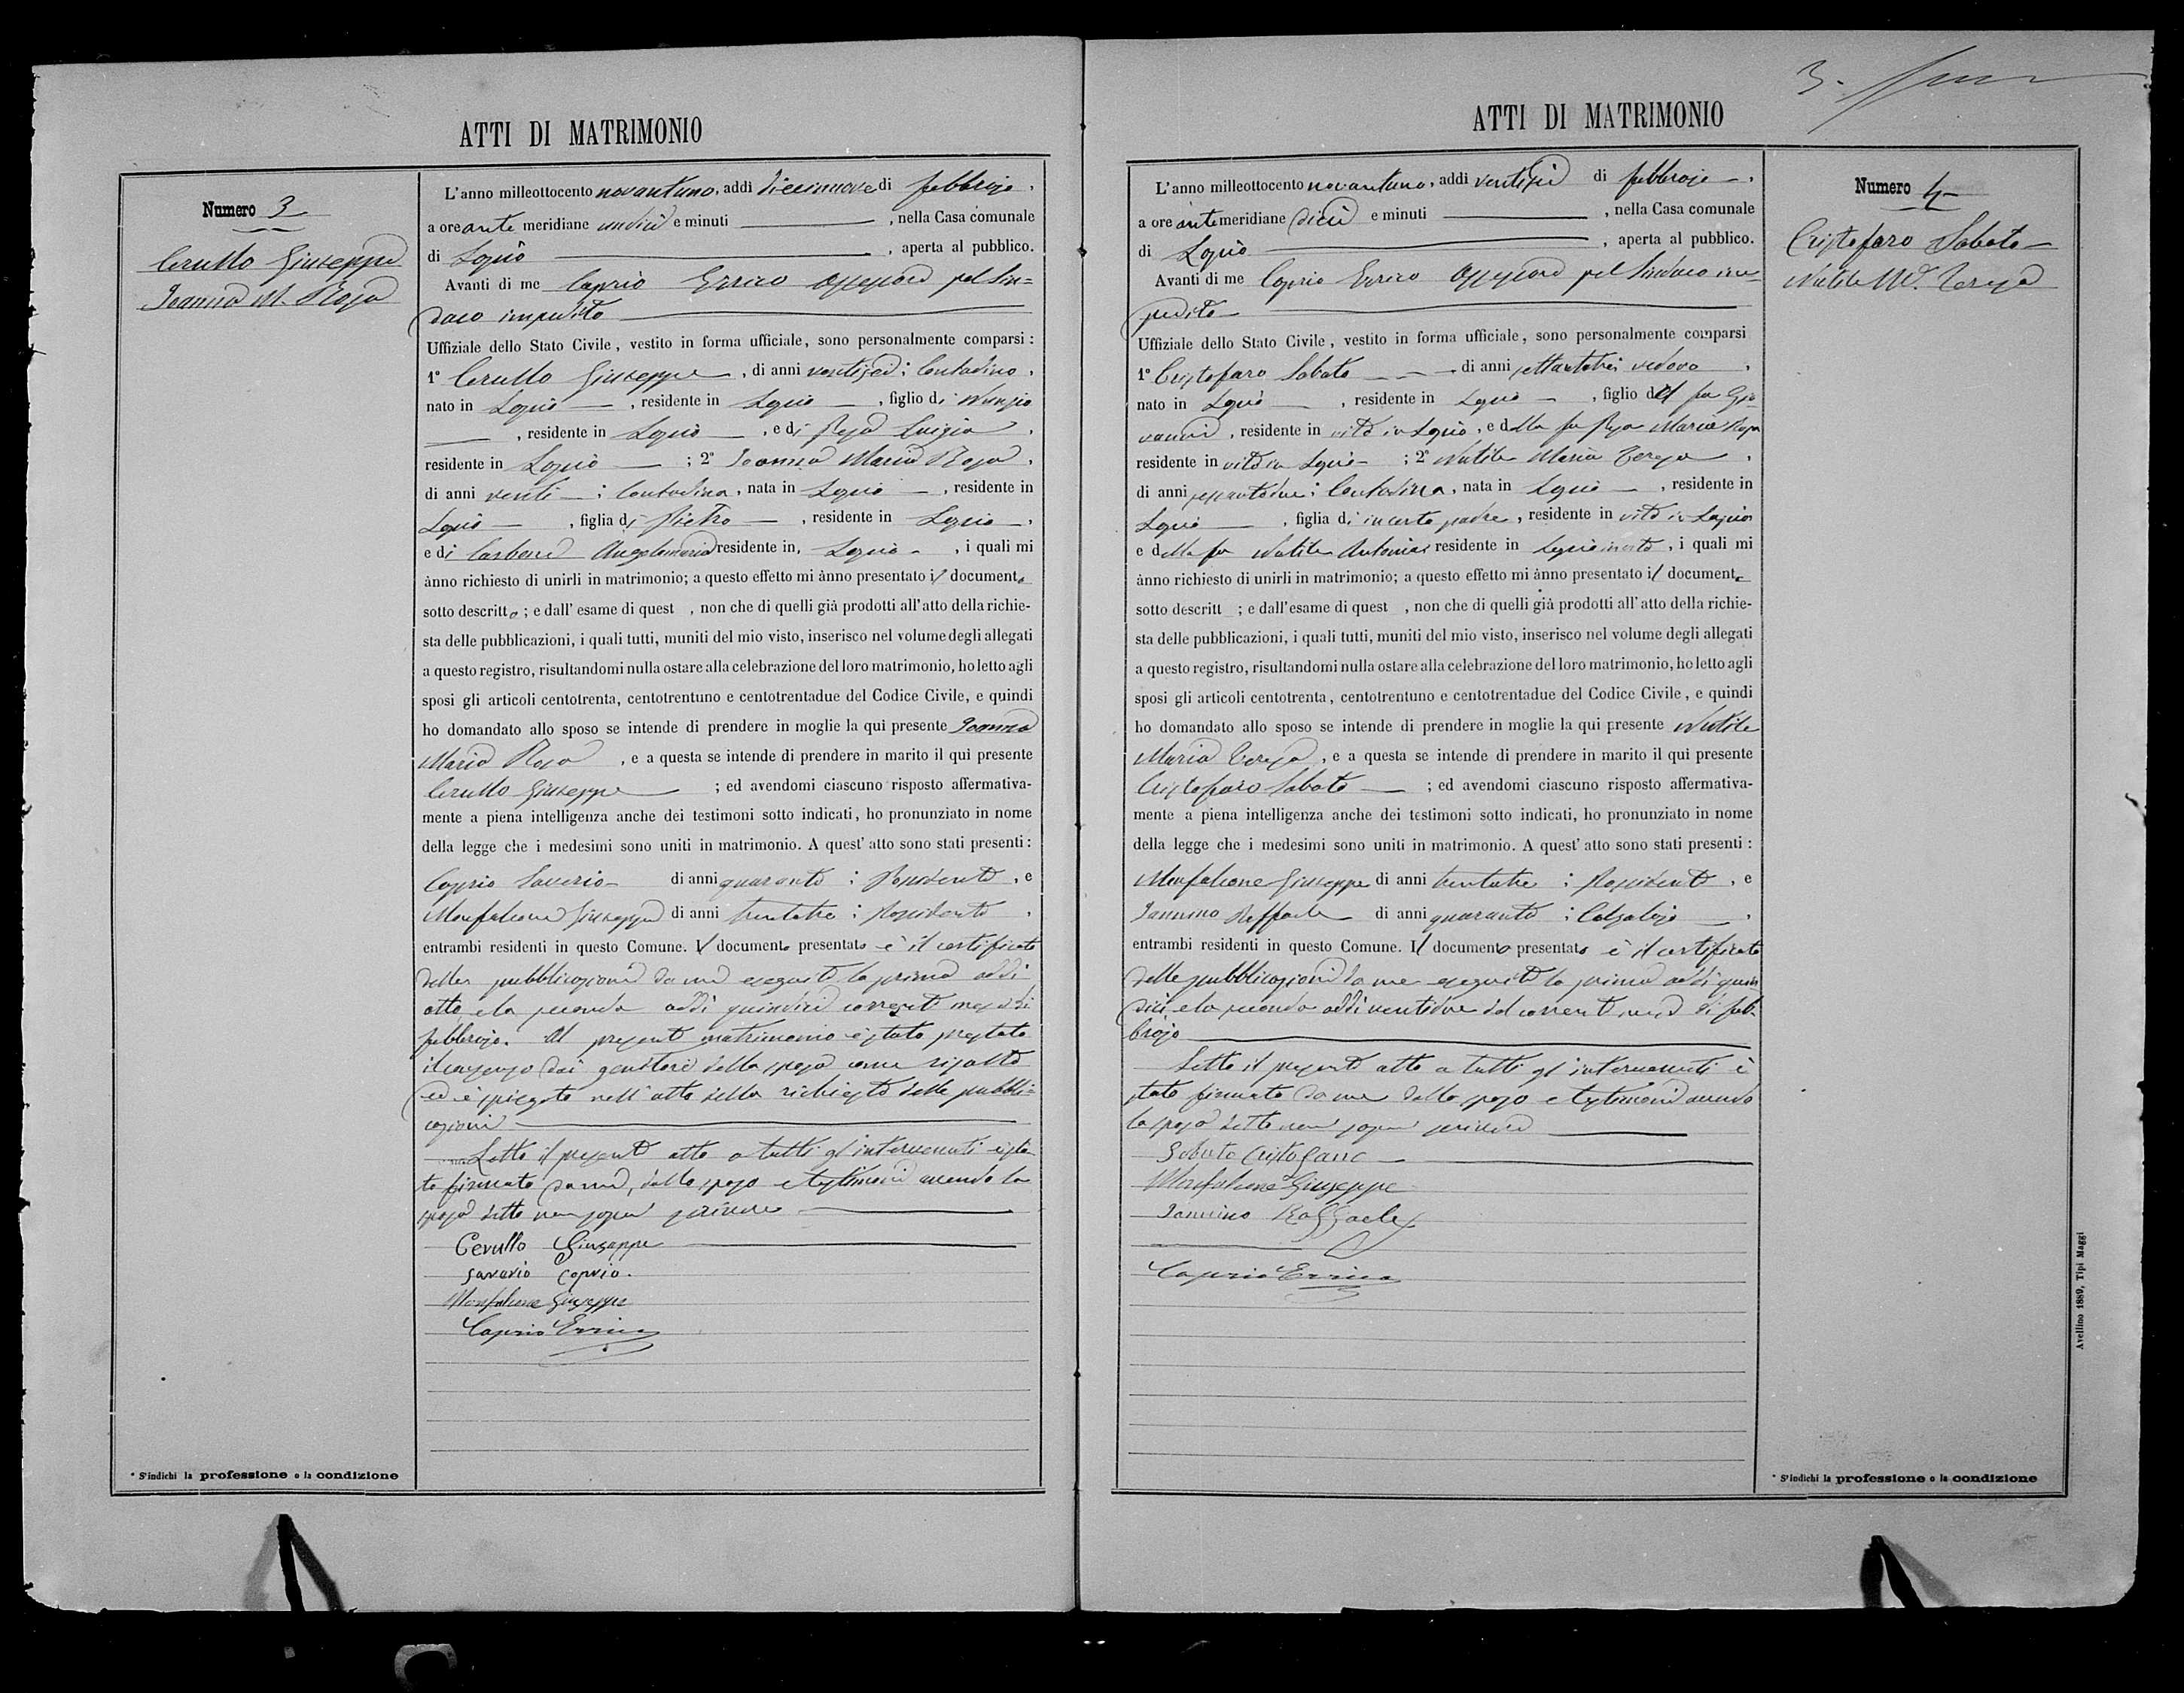 ATTI DI MATRIMONIO
Numero 3
Cerullo Giuseppe
Ioanna M. Rosa
L'anno milleottocento novantuno, addì diecinove di febbraio,
a ore ante meridiane undici e minuti , nella Casa comunale
di Lapio , aperta al pubblico.
Avanti di me Caprio Errico Assessore pel Sin=
daco impedito
Uffiziale dello Stato Civile, vestito in forma ufficiale, sono personalmente comparsi:
1° Cerullo Giuseppe , di anni ventisei; Contadino,
nato in Lapio , residente in Lapio , figlio di Nunzio
, residente in Lapio , e di Luigia
residente in Lapio ; 2° Ioanna Maria Rosa,
di anni venti ; Contadina, nata in Lapio , residente in
Lapio , figlia di Pietro , residente in Lapio ,
e di Carbone Angelamaria residente in, Lapio , i quali mi
ànno richiesto di unirli in matrimonio; a questo effetto mi ànno presentato il documento
sotto descritto; e dall'esame di quest , non che di quelli già prodotti all'atto della richie-
sta delle pubblicazioni, i quali tutti, muniti del mio visto, inserisco nel volume degli allegati
a questo registro, risultandomi nulla ostare alla celebrazione del loro matrimonio, ho letto agli
sposi gli articoli centotrenta, centotrentuno e centotrentadue del Codice Civile, e quindi
ho domandato allo sposo se intende di prendere in moglie la qui presente Ioanna
Maria Rosa , e a questa se intende di prendere in marito il qui presente
Cerullo Giuseppe ; ed avendomi ciascuno risposto affermativa-
mente a piena intelligenza anche dei testimoni sotto indicati, ho pronunziato in nome
della legge che i medesimi sono uniti in matrimonio. A quest'atto sono stati presenti:
Caprio Saverio di anni quaranta ; Possidente , e
Monfalcone Giuseppe di anni trentatre ; Possidente ,
entrambi residenti in questo Comune. Il documento presentato è il certificato
delle pubblicazioni da me eseguite la prima addì
otto e la seconda addì quindici corrente mese di
febbraio. Al presente matrimonio è stato prestato
il consenso dai genitori della sposa come risulta
ed è spiegato nell'atto della richiesta delle pubbli=
cazioni
Letto il presente atto a tutti gl'intervenuti è sta
to firmato da me, dallo sposo e testimoni avendo la
sposa detto non sapere scrivere
Cerullo Giuseppe
Saverio Caprio.
Monfalcone Giuseppe
Caprio Errico
* S'indichi la professione o la condizione
3.
ATTI DI MATRIMONIO
Numero 4
Cristofaro Sabato
Nutile Ma. Teresa
L'anno milleottocento novantuno, addì ventisei di febbraio ,
a ore ante meridiane dieci e minuti , nella Casa comunale
di Lapio , aperta al pubblico.
Avanti di me Caprio Errico Assessore pel Sindaco im=
pedito
Uffiziale dello Stato Civile, vestito in forma ufficiale, sono personalmente comparsi
1° Cristofaro Sabato di anni settantatrè vedovo ,
nato in Lapio , residente in Lapio , figlio del fu Gio
vanni, residente in vita in Lapio, e della fu Maria Rosa
residente in vita in Lapio ; 2° Nutile Maria Teresa ,
di anni sessantadue; Contadina, nata in Lapio , residente in
Lapio , figlia di incerto padre, residente in vita in Lapio
e della fu Nutile Antonia residente in Lapio in vita, i quali mi
ànno richiesto di unirli in matrimonio; a questo effetto mi ànno presentato il documento
sotto descritt ; e dall'esame di quest , non che di quelli già prodotti all'atto della richie-
sta delle pubblicazioni, i quali tutti, muniti del mio visto, inserisco nel volume degli allegati
a questo registro, risultandomi nulla ostare alla celebrazione del loro matrimonio, ho letto agli
sposi gli articoli centotrenta, centotrentuno e centotrentadue del Codice Civile, e quindi
ho domandato allo sposo se intende di prendere in moglie la qui presente Nutile
Maria Teresa , e a questa se intende di prendere in marito il qui presente
Cristofaro Sabato ; ed avendomi ciascuno risposto affermativa-
mente a piena intelligenza anche dei testimoni sotto indicati, ho pronunziato in nome
della legge che i medesimi sono uniti in matrimonio. A quest'atto sono stati presenti:
Monfalcone Giuseppe di anni trentatre ; Possidente , e
Iannino Raffaele di anni quaranta ; Calzolajo ,
entrambi residenti in questo Comune. Il documento presentato è il certificato
delle pubblicazioni da me eseguite la prima addì quin
dici e la seconda addì ventidue del corrente mese di feb-
braio
Letto il presente atto a tutti gl'intervenuti è
stato firmato da me dallo sposo e testimoni avendo
la sposa detto non sapere scrivere
Sabato Cristofaro
Monfalcone Giuseppe
Iannino Raffaele
Caprio Errico
* S'indichi la professione o la condizione
Avellino 1889, Tipi Maggi